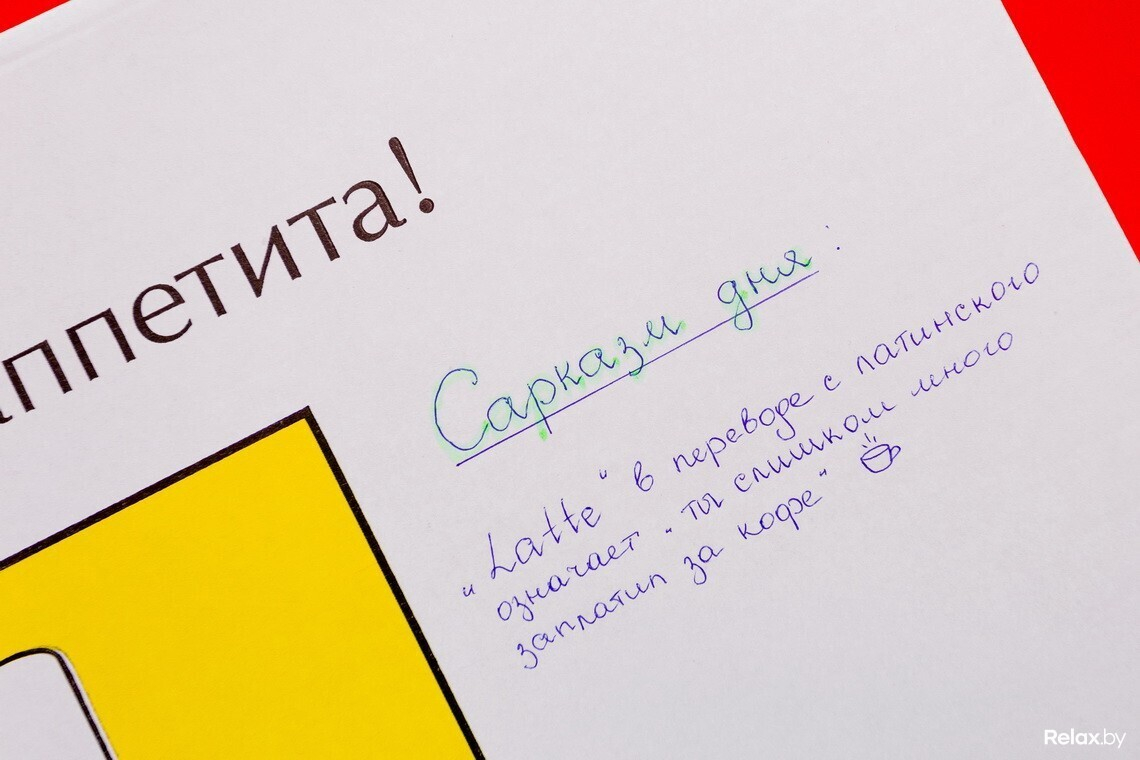 аппетита!
Сарказм дня:
„Latte" в переводе с латинского
означает „ты слишком много
заплатил за кофе"
Relax.by